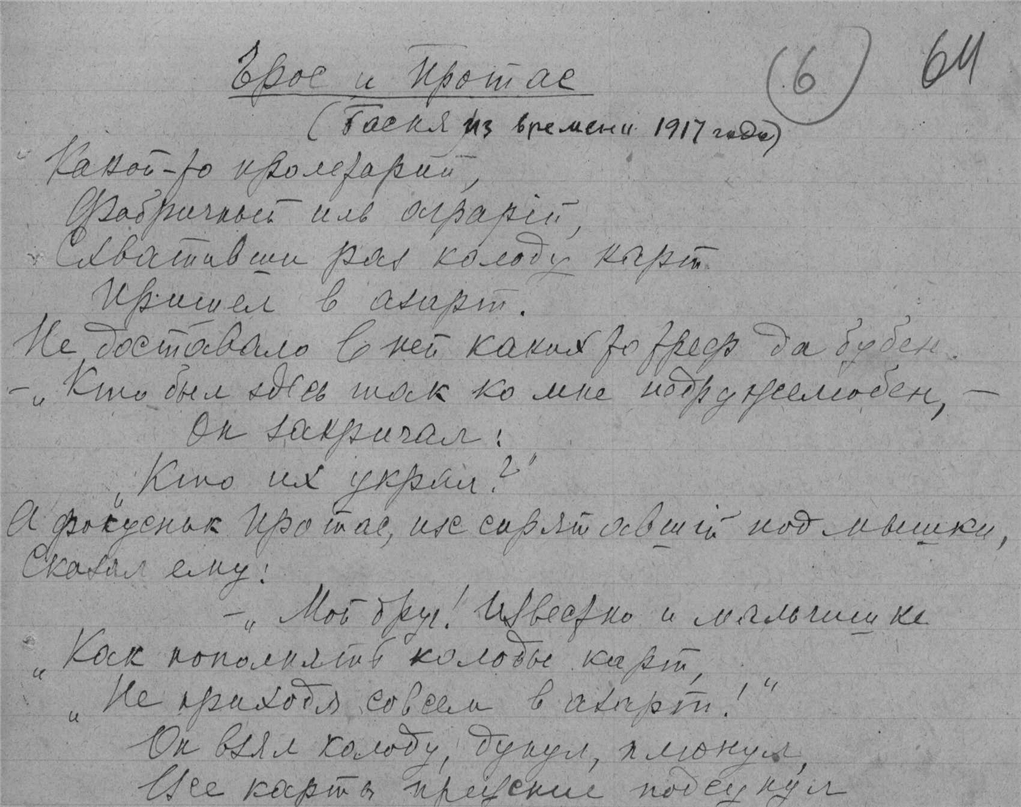 Эрос и Протас
(6) 64
(Басня из времени 1917 года)
Какой-то пролетарий,
Фабричный иль аграрій,
Схвативши раз колоду карт
Пришел в азарт.
Не доставало в ней каких то треф да бубен.
–„Кто был здесь так ко мне недружелюбен, –
Он закричал:
„Кто их украл?"
А фокусник Протас, их спрятавшій под мышки,
Сказал ему:
–„Мой друг! Известно и мальчишке
„Как пополнять колоды карт,
„Не приходя совсем в азарт!"
Он взял колоду, дунул, плюнул,
Все карты прежние подсунул